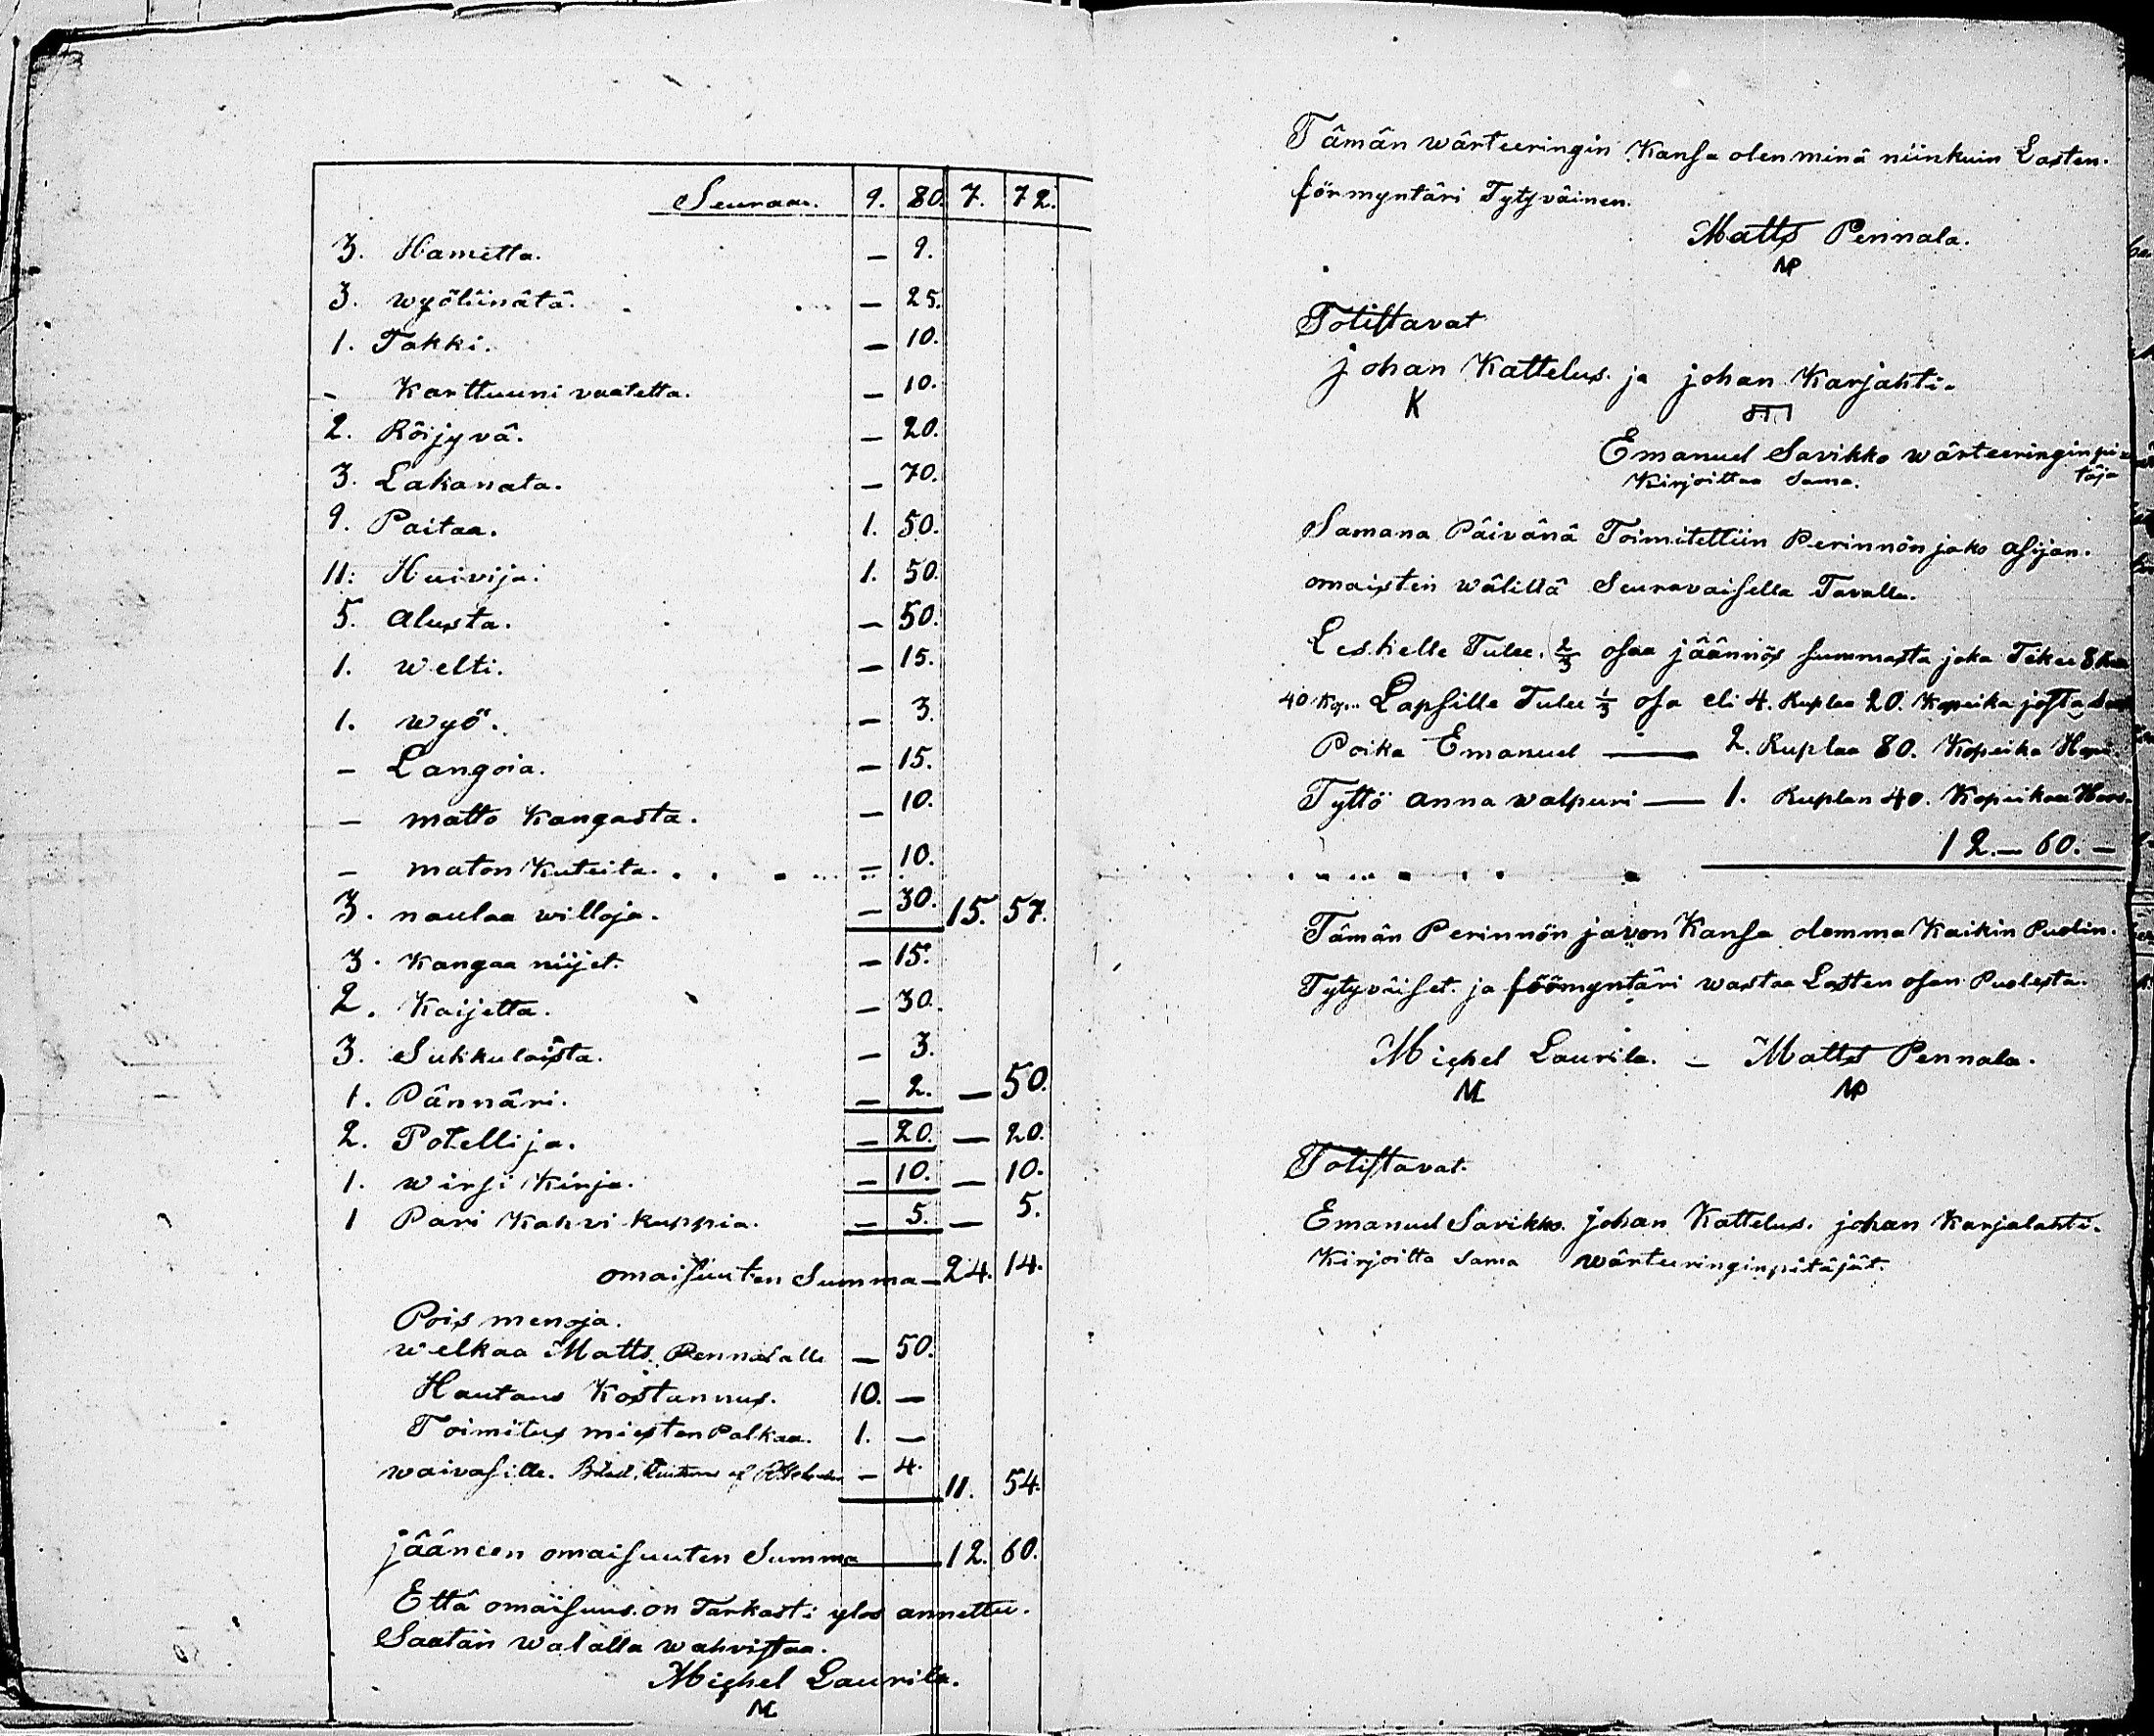 Seuraa. 9. 80. 7. 72.
3. Hametta. — 9.
3. wyöliinätä. — 25.
1. Takki. — 10.
- Karttuuni vaatetta. — 10.
2. Röijyvä. — 20.
3. Lakanata. — 70.
9. Paitaa. 1. 50.
11: Huivija. 1. 50.
5. alusta. — 50.
1. welti. — 15.
1. wyö. — 3.
- Langoia. — 15.
- matto Kangasta. — 10.
- maton Kuteita. — 10.
3. naulaa willoja. — 30. 15. 57.
3. Kangaa niijet. — 15.
2. Kaijetta. — 30.
3. Sukkulaista. — 3.
1. Pännäri. — 2. — 50.
2. Potellija. — 20. — 20.
1. wirsi Kirja. — 10. — 10.
1 Pari Kahvi kuppia. — 5. — 5.
omaisuuten Summa — 24. 14.
Pois menoja.
welkaa Matts Pennalalle — 50.
Hautaus Kostannus. 10. —
Toimitus miesten Palkaa. 1. —
waivasille. — 4. 11. 54.
jääneen omaisuuten Summa 12. 60.
Että omaisuus on Tarkasti ylos annettu.
Saatan walalla wahvistaa.
Michel Laurila.
ML
Tämän wärteeringin Kansa olen minä niinkuin Lasten.
förmyntäri Tytyväinen.
Matts Pennala.
MP
Totistavat
johan Kattelus. ja johan Karjahti.
K
Emanuel Savikko wärteeringinpi=
täjä
Kirjoittaa Sama.
Samana Päivänä Toimitettiin Perinnön jako asijan.
omaisten wälillä Seuravaisella Tavalla.
Leskelle Tulee. 2/3 osaa jäännös summasta joka Tekee 8
40 Kop. Lapsille Tulee 1/3 osa eli 4. Ruplaa 20. Kopeika josta
Poika Emanuel —— 2. Ruplaa 80. Kopeika Hop.
Tyttö anna walpuri —— 1. Ruplan 40. Kopeikaa
12.— 60.—
Tämän Perinnön javon Kansa olemma Kaikin Puolin.
Tytyväiset. ja föömyntäri wastaa Lasten osan Puolesta.
Michel Laurila. — Matts Pennala.
ML MP
Totistavat.
Emanuel Savikko. johan Kattelus. johan Karjalahti.
Kirjoitta Sama wärteeringinpitäjät.